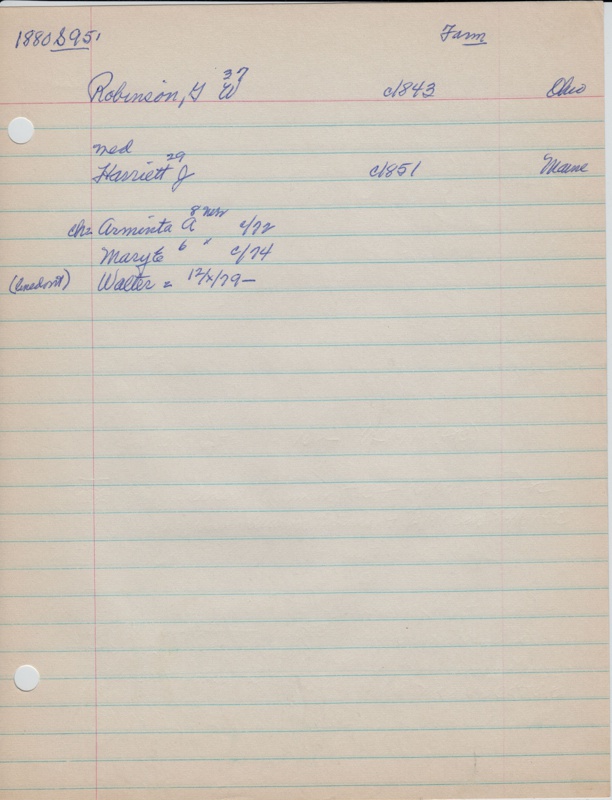 1880 S951 Farm
Robinson, G W 37 c1843 Ohio
med
Harriett J 29 c1851 Maine
ch= Arminta A 8 c/72
Mary E 6 " c/74
Walter = 12/x/79—